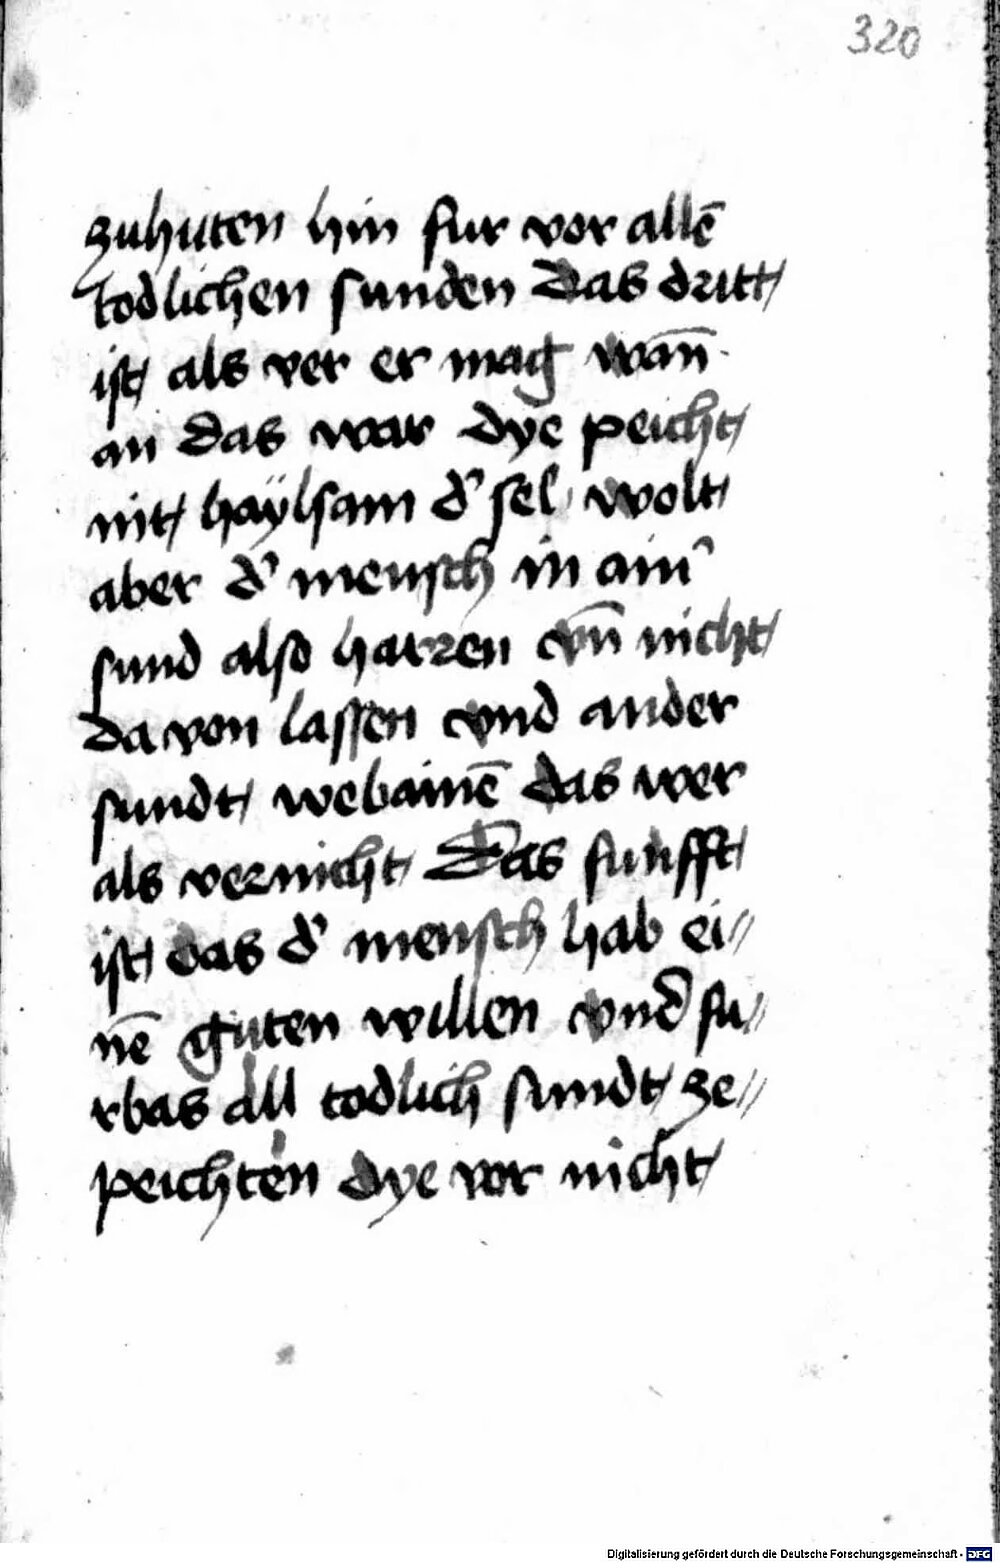 320
zuhuten hin fur vor allē
todlichen sunden Das dritt
ist als ver er mag wan̄
an das war dye peicht
nit haÿlsam dˀ sel wolt
aber dˀ mensch in ainˀ
sund also harren vn̄ nicht
da von lassen vnd ander
sundt webainē das wer
als vernicht Das funfft
ist das dˀ mensch hab ei//
nē guten willen vnd fu//
rbas all todlich sundt ze//
peichten dye vor nicht
Digitalisierung gefördert durch die Deutsche Forschungsgemeinschaft - DFG